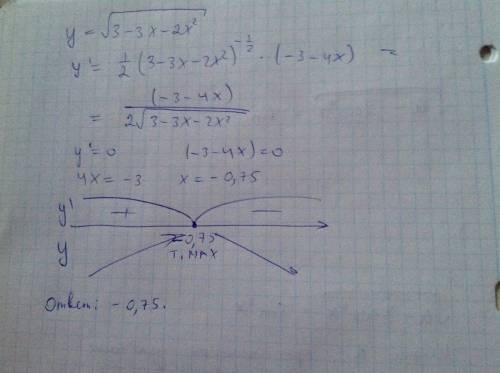 y = √(3-3x-2x²)
y' = 1/2 (3-3x-2x²)^(-1/2) · (-3-4x) =
= (-3-4x) / (2√(3-3x-2x²))
y'=0 (-3-4x)=0
4x = -3 x = -0,75
y' + -
y -0,75
т. MAX
Ответ: -0,75.